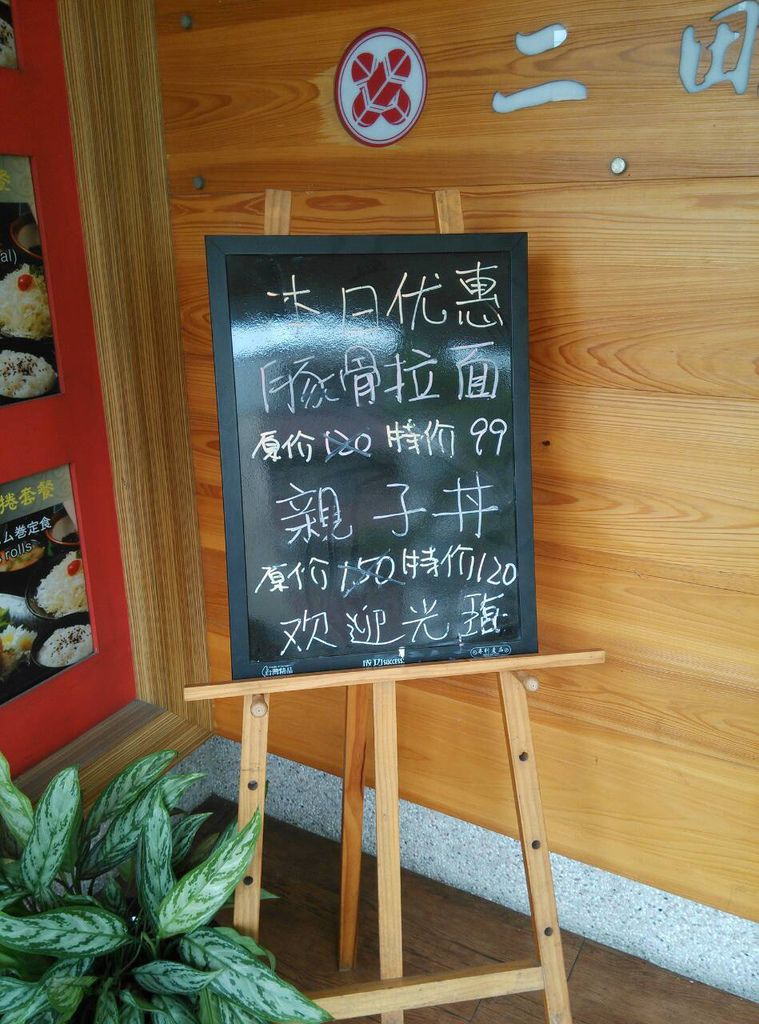 二田
本日优惠
豚骨拉面
原价120 特价 99
親子丼
原价150 特价120
欢迎光臨
台灣精品
成功 success
al)
捲套餐
ム巻定食
rolls